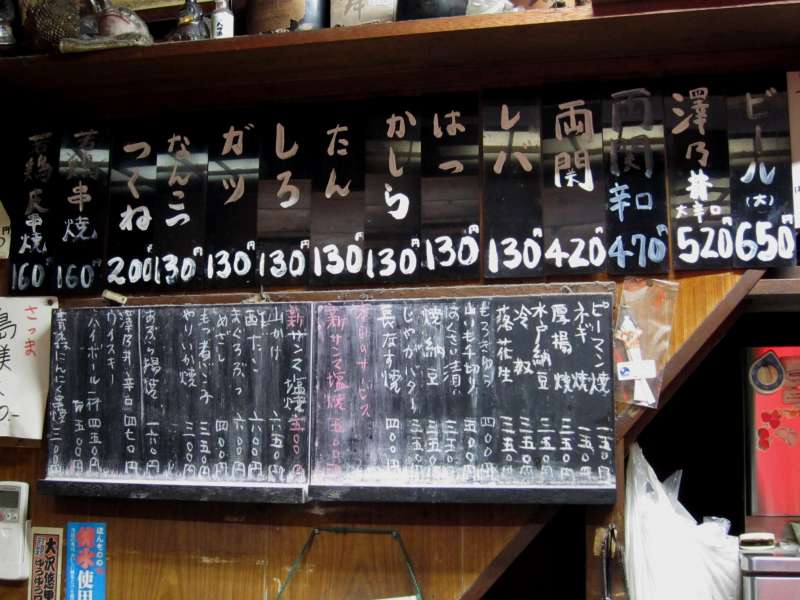 ビール(大) 650円
澤乃井 大辛口 520円
両関 辛口 470円
両関 420円
レバ 130円
はつ 130円
かしら 130円
たん 130円
しろ 130円
ガツ 130円
なんこつ 130円
つくね 200円
若鶏串焼 160円
若鶏皮串焼 160円
ピーマン焼 一五〇円
ネギ焼 一五〇円
厚揚焼 三五〇円
水戸納豆 三五〇円
冷奴 三五〇円
落花生 三五〇円
もろきゅう 四〇〇円
山いも千切り
はくさい漬
焼納豆
じゃがバター 四〇〇円
長なす焼 四〇〇円
本日のサービス
新サンマ塩焼 五〇〇円
新サンマ塩焼 五〇〇円
山かけ 六五〇円
まぐろぶつ 六〇〇円
めざし
もつ煮こみ 三五〇円
やりいか焼 三〇〇円
あぶら揚焼
澤乃井辛口 四七〇円
ウイスキー
ハイボール一杯 四五〇円
さつま
島美
ほんものの
大沢悠里
ゆうゆう